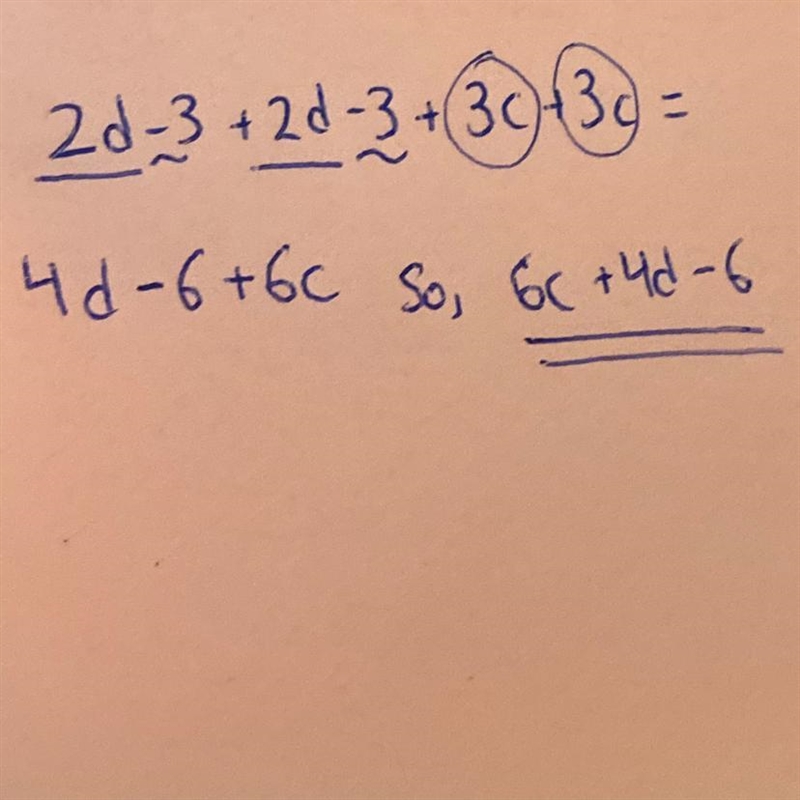 2d-3 + 2d-3 + 3c + 3c =
4d - 6 + 6c So, 6c + 4d - 6